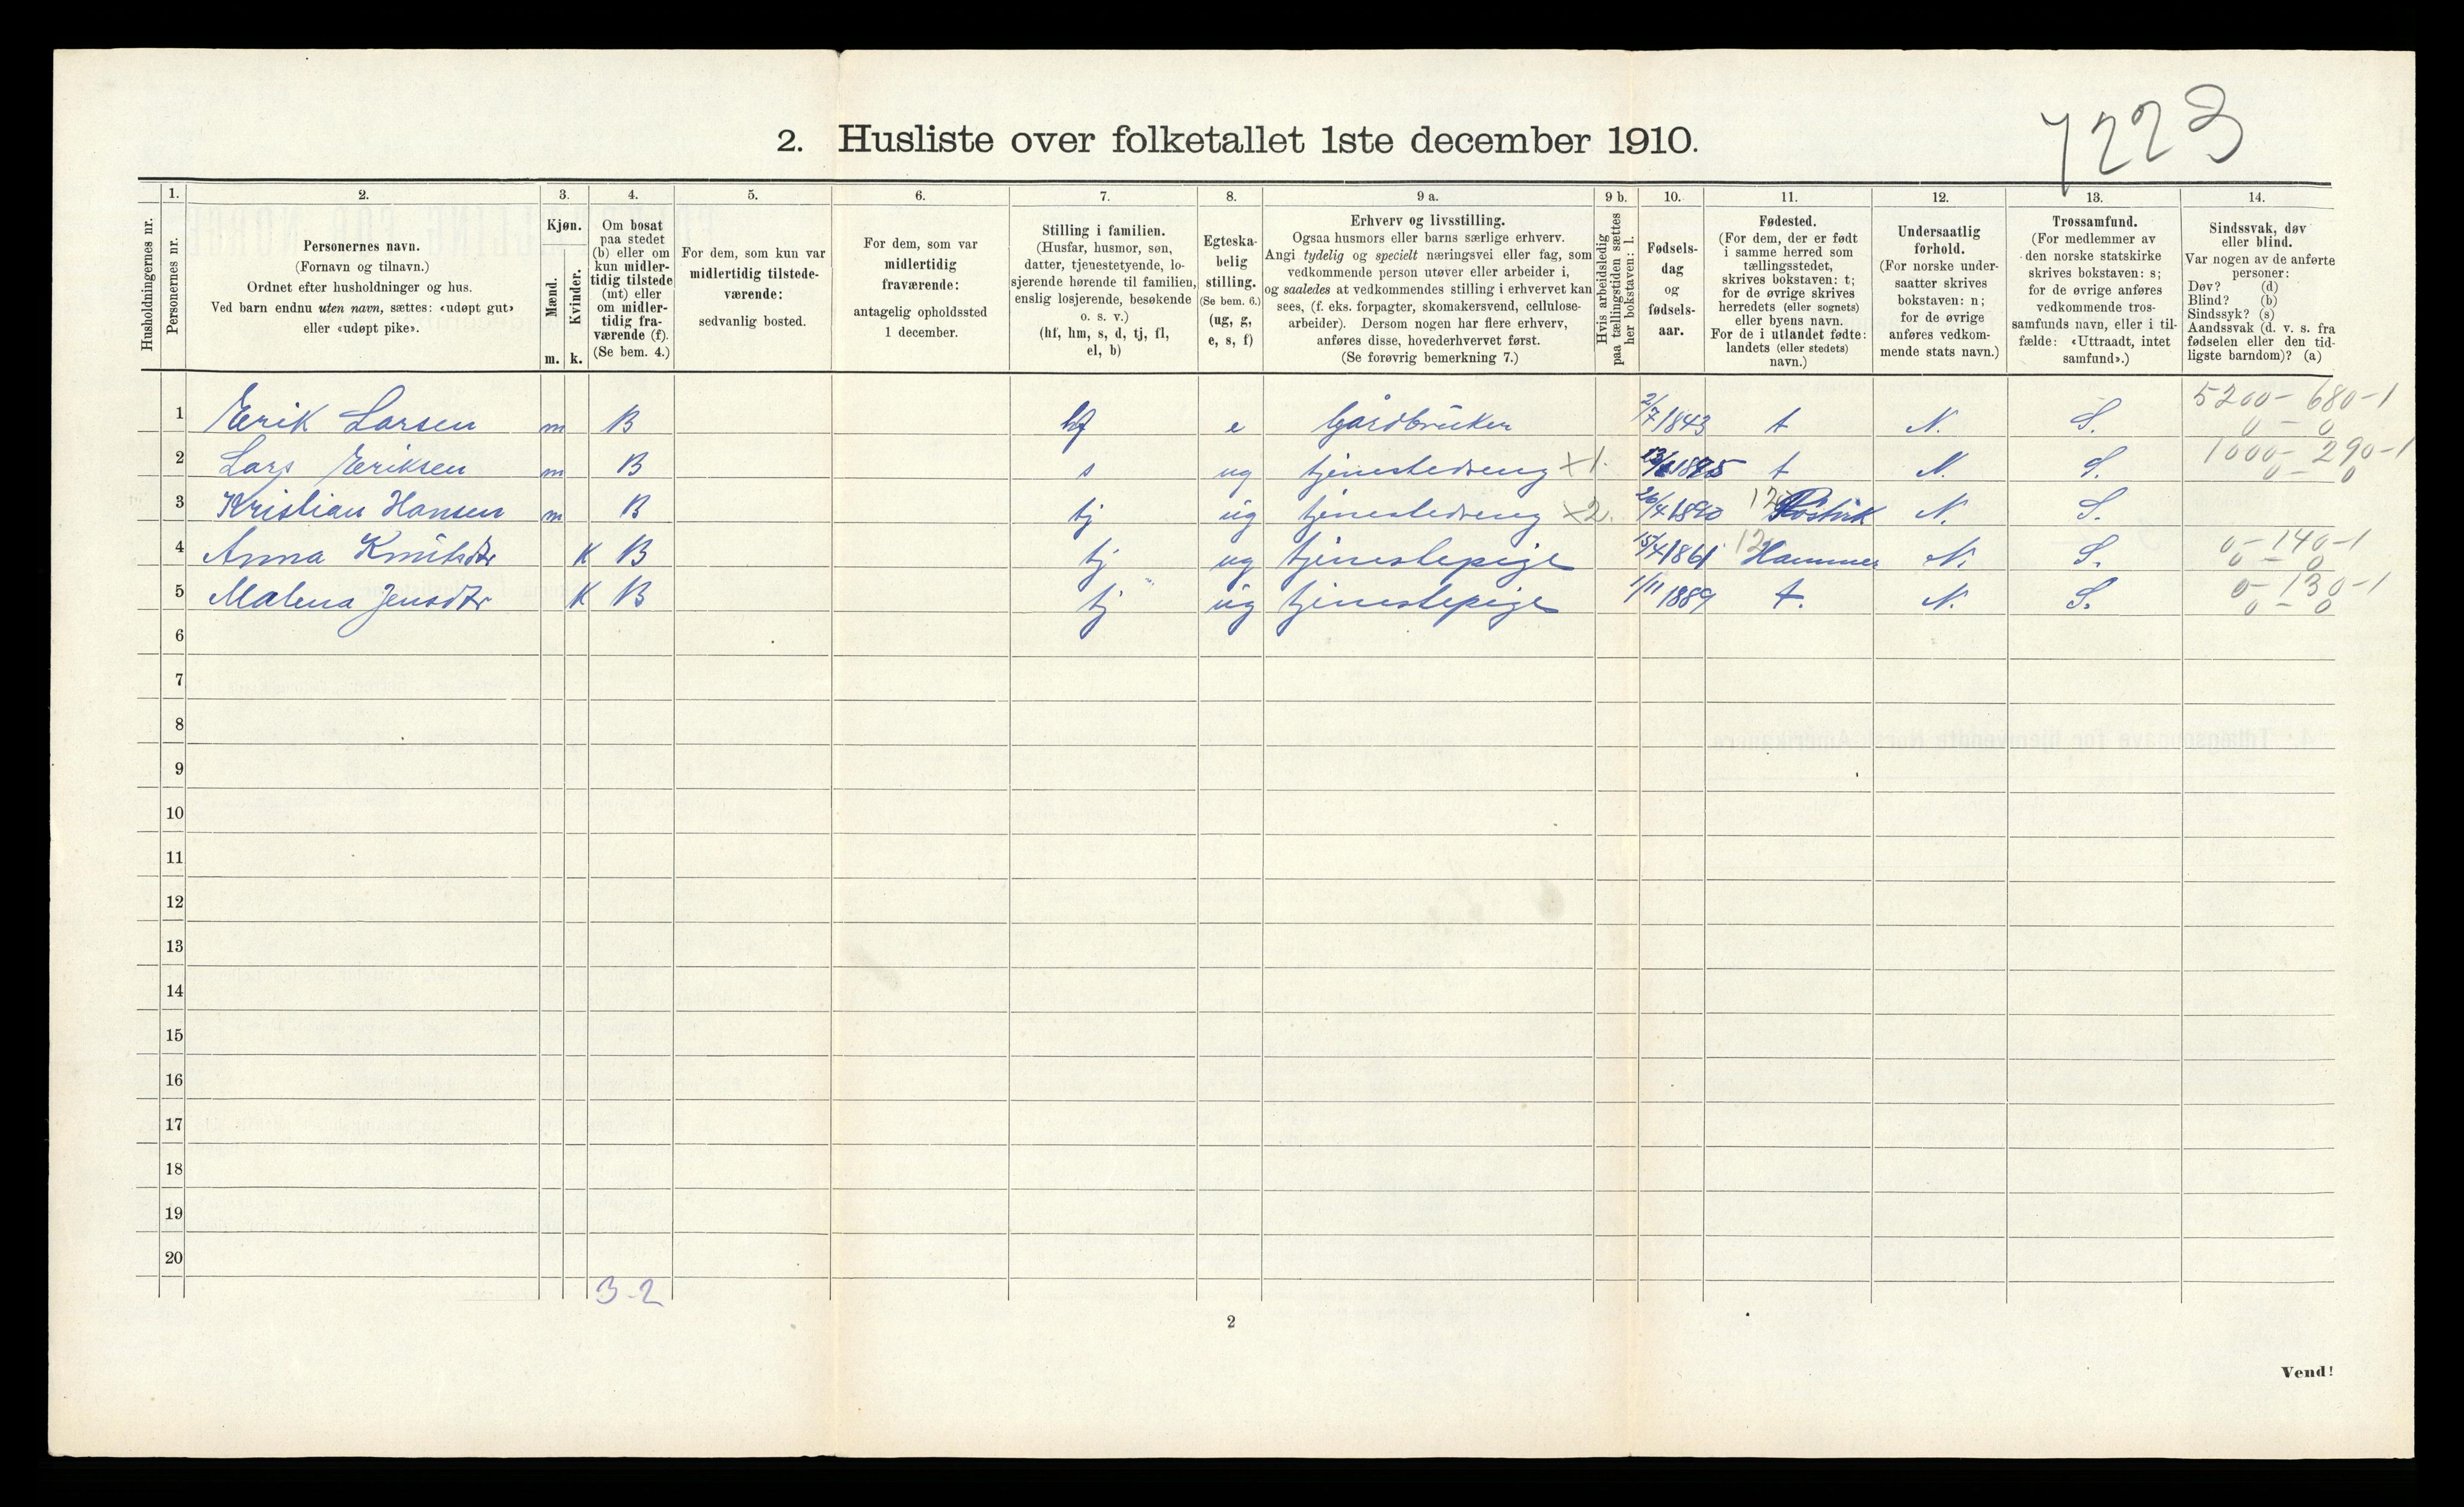 7223
2. Husliste over folketallet 1ste december 1910.
Husholdningernes nr.
1.
Personernes nr.
2.
Personernes navn.
(Fornavn og tilnavn.)
Ordnet efter husholdninger og hus.
Ved barn endnu uten navn, sættes: «udøpt gut»
eller «udøpt pike».
3.
Kjøn.
Mænd.
Kvinder.
m. k.
4.
Om bosat
paa stedet
(b) eller om
kun midler-
tidig tilstede
(mt) eller
om midler-
tidig fra-
værende (f).
(Se bem. 4.)
5.
For dem, som kun var
midlertidig tilstede-
værende:
sedvanlig bosted.
6.
For dem, som var
midlertidig
fraværende:
antagelig opholdssted
1 december.
7.
Stilling i familien.
(Husfar, husmor, søn,
datter, tjenestetyende, lo-
sjerende hørende til familien,
enslig losjerende, besøkende
o. s. v.)
(hf, hm, s, d, tj, fl,
el, b)
8.
Egteska-
belig
stilling.
(Se bem. 6.)
(ug, g,
e, s, f)
9 a.
Erhverv og livsstilling.
Ogsaa husmors eller barns særlige erhverv.
Angi tydelig og specielt næringsvei eller fag, som
vedkommende person utøver eller arbeider i,
og saaledes at vedkommendes stilling i erhvervet kan
sees, (f. eks. forpagter, skomakersvend, cellulose-
arbeider). Dersom nogen har flere erhverv,
anføres disse, hovederhvervet først.
(Se forøvrig bemerkning 7.)
9 b.
Hvis arbeidsledig
paa tællingstiden sættes
her bokstaven: l.
10.
Fødsels-
dag
og
fødsels-
aar.
11.
Fødested.
(For dem, der er født
i samme herred som
tællingsstedet,
skrives bokstaven: t;
for de øvrige skrives
herredets (eller sognets)
eller byens navn.
For de i utlandet fødte:
landets (eller stedets)
navn.)
12.
Undersaatlig
forhold.
(For norske under-
saatter skrives
bokstaven: n;
for de øvrige
anføres vedkom-
mende stats navn.)
13.
Trossamfund.
(For medlemmer av
den norske statskirke
skrives bokstaven: s;
for de øvrige anføres
vedkommende tros-
samfunds navn, eller i til-
fælde: «Uttraadt, intet
samfund».)
14.
Sindssvak, døv
eller blind.
Var nogen av de anførte
personer:
Døv? (d)
Blind? (b)
Sindssyk? (s)
Aandssvak (d. v. s. fra
fødselen eller den tid-
ligste barndom)? (a)
1 Erik Larsen m B hf e Gårdbruker 2/7 1843 t N. S. 5200 - 680 - 1
0 - 0
2 Lars Eriksen m B s ug tjenestedreng x1. t N. S. 1000 - 290 - 1
0 - 0
3 Kristian Hansen m B tj ug tjenestedreng x2. 26/4 1890 N. S.
4 Anna Knutsdtr K B tj ug tjenestepige 15/4 1861 Hammer N. S. 0 - 140 - 1
0 - 0
5 Malena Jensdtr K B tj ug tjenestepige 1/11 1889 t. N. S. 0 - 130 - 1
0 - 0
6
7
8
9
10
11
12
13
14
15
16
17
18
19
20
3 - 2
2
Vend!